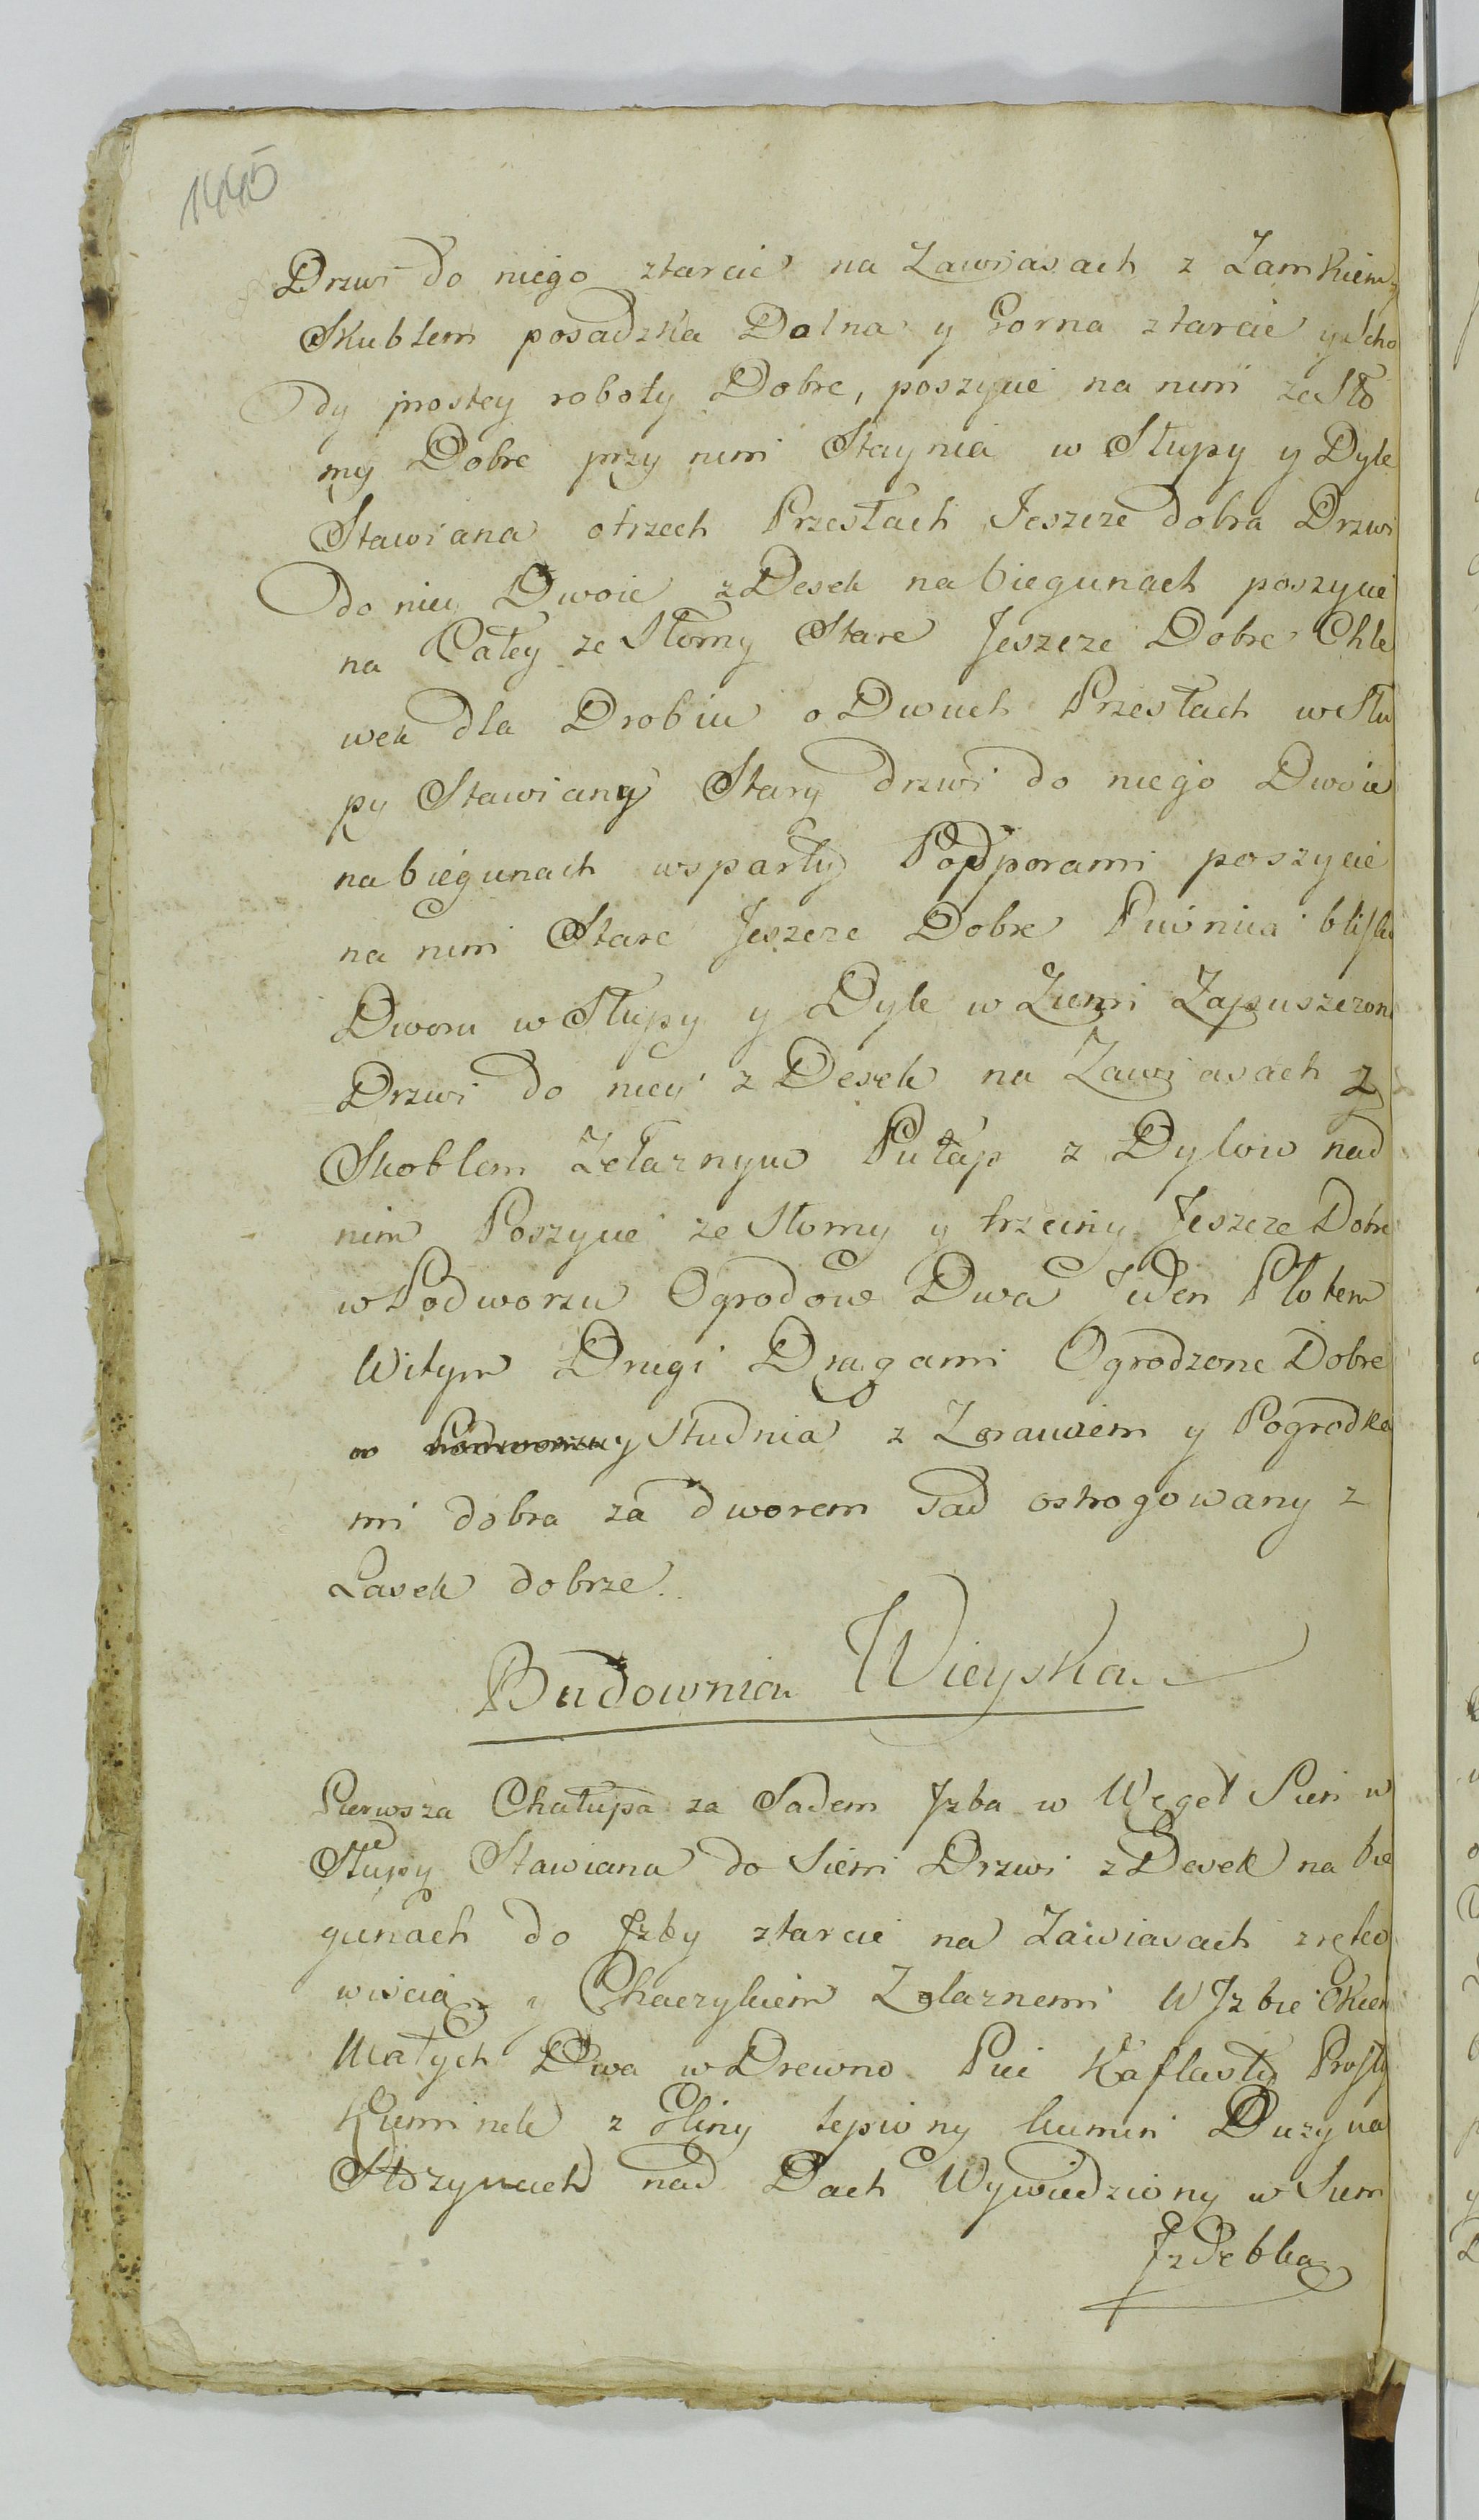 1445
Drzwi do niego ztarcic na Zawiasach z Zamkiem y
Skublem posadzka Dolna y Gorna ztarcic y Scho
dy prostey roboty Dobre, poszycie na nim ze Sło
my Dobre przy nim Staynia w Słupy y Dyle
Stawiana o trzech Przesłach Jeszcze dobra Drzwi
do niey Dwoie z Desek na biegunach poszycie
na Całey ze Słomy Stare Jeszcze Dobre Chle
wek dla Drobiu o Dwuch Przesłach w Słu
py Stawiany Stary drzwi do niego Dwoie
na biegunach wsparty Podporami poszycie
na nim Stare Jeszcze Dobre Piwnica blisko
Dworu w Słupy y Dyle w Ziemi Zapuszczona
Drzwi do niey z Desek na Zawiasach z
Skoblem Żelaznym Pułap z Dylow nad
nim Poszycie ze Słomy y trzciny Jeszcze Dobre
w Podworzu Ogrodow Dwa Jeden Płotem
Witym Drugi Drągami Ogrodzone Dobre
w Podworzu y Studnia z Zorawiem y Pogrodka
mi dobra za dworem Sad ostrogowany z
Lasek dobrze.
Budownia Wieyska
Pierwsza Chałupa za Sadem Jzba w Węgeł Sień w
Słupy Stawiana do Sieni Drzwi z Desek na bie
gunach do Jzby ztarcic na Zawiasach z ręko
wiscią y Chaczykiem Zelaznemi W Jzbie Okien
Małych Dwa w Drewno Piec Kaflasty Prosty
Kominek z Gliny lepiony komin Duzy na
Stozynach nad Dach Wywiedziony w Sieni
Jzdebka